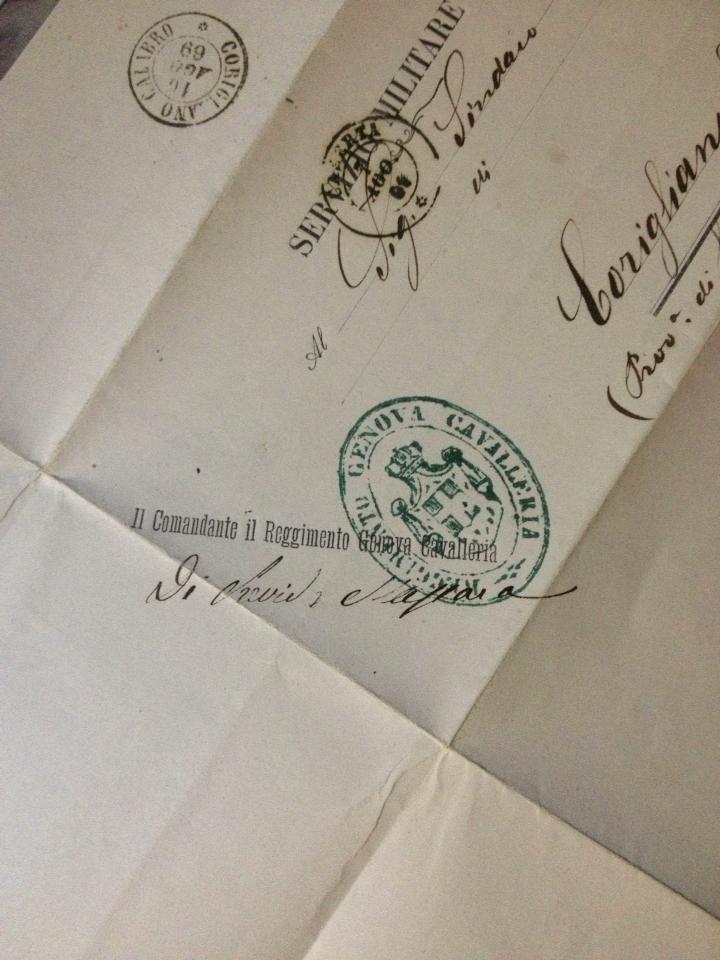 CORIGLIANO CALABRO
16
AGO
69
SERVIZIO MILITARE
AGO
Al Sig. Sindaco
di
Corigliano
(Prov.a di
REGGIMENTO GENOVA CAVALLERIA
Il Comandante il Reggimento Genova Cavalleria
Di